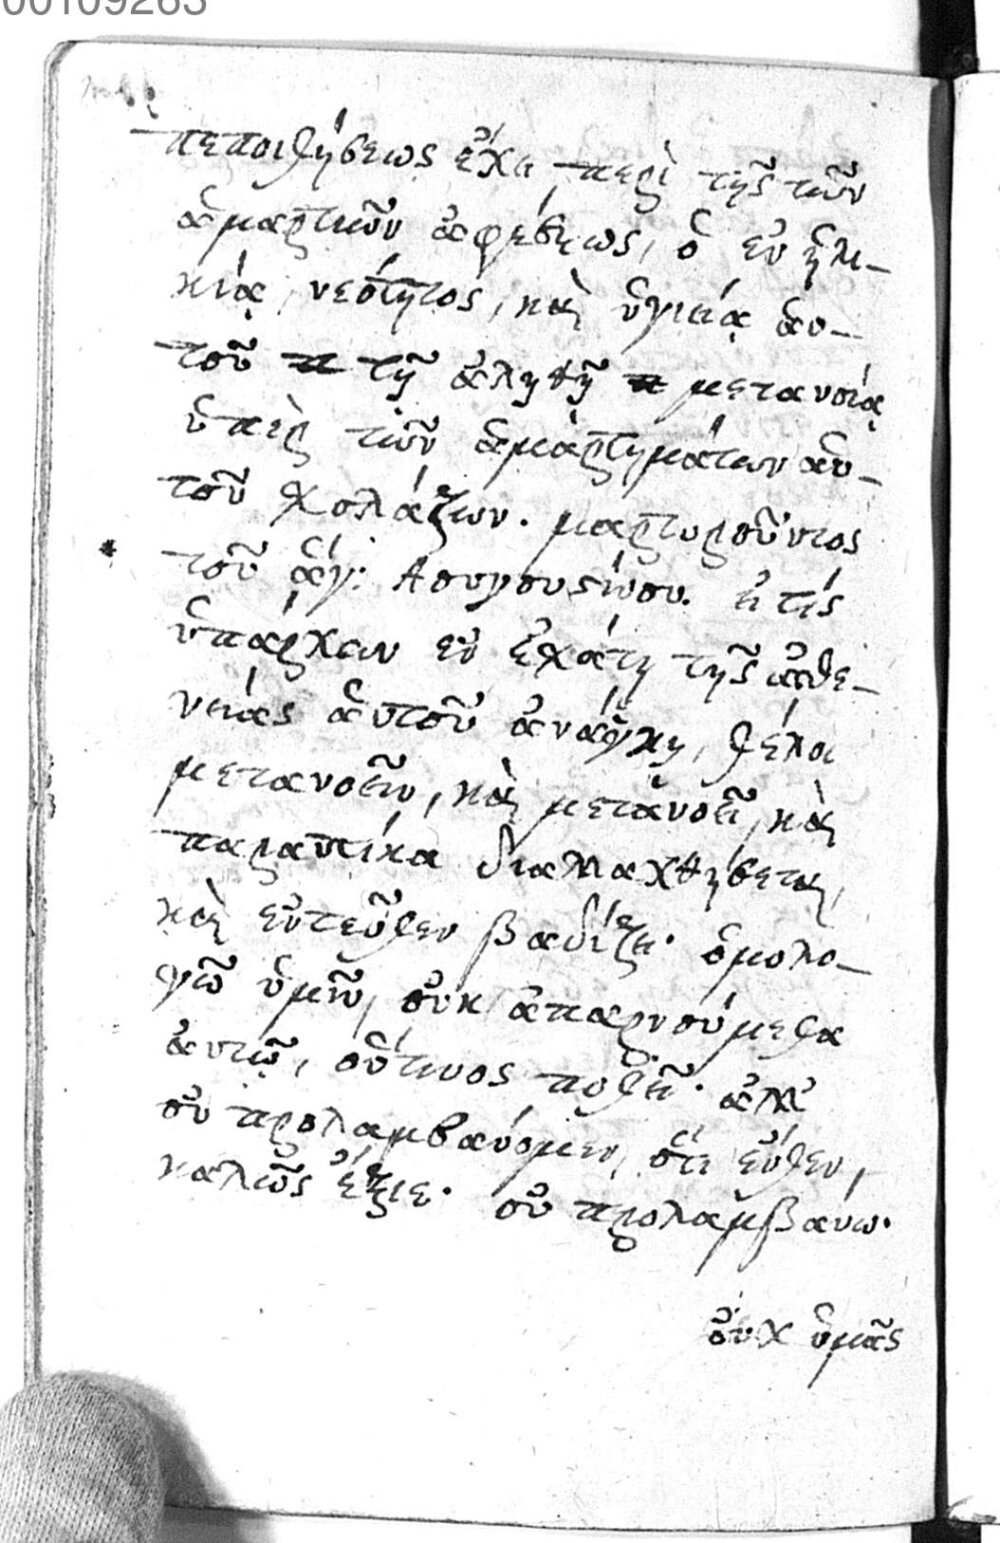 00109263
πεποιθήσεως ἔχει περὶ τῆς τῶν
ἁμαρτιῶν ἀφέσεως, ὁ ἐν ἡλι-
κίᾳ, νεότητος, καὶ ὑγιείᾳ ἀυ-
τοῦ τῇ ἀληθῇ μετανοίᾳ
ὑπὲρ τῶν ἁμαρτημάτων ἀυ-
τοῦ χολάζων. μαρτυροῦντος
* τοῦ ἁγ: Αουγουστίνου. ἐι τίς
ὑπάρχων ἐν ἐχάτῃ τῆς ἀσθε-
νείας ἀυτοῦ ἀνάγκῃ, θέλοι
μετανοεῖν, καὶ μετανοεῖ, καὶ
παραυτίκα διαλλαχθήσεται,
καὶ ἐντεῦθεν βαδίζει. ὁμολο-
γῶ ὑμῖν, οὐκ ἀπαρνούμεθα
ἀυτῷ, οὗτινος ποθεῖ. ἀλλ'
οὐ προλαμβάνομεν, ὅτι ἔνθεν,
καλῶς ἔξιε. οὐ προλαμβάνω.
οὐχ ὑμᾶς